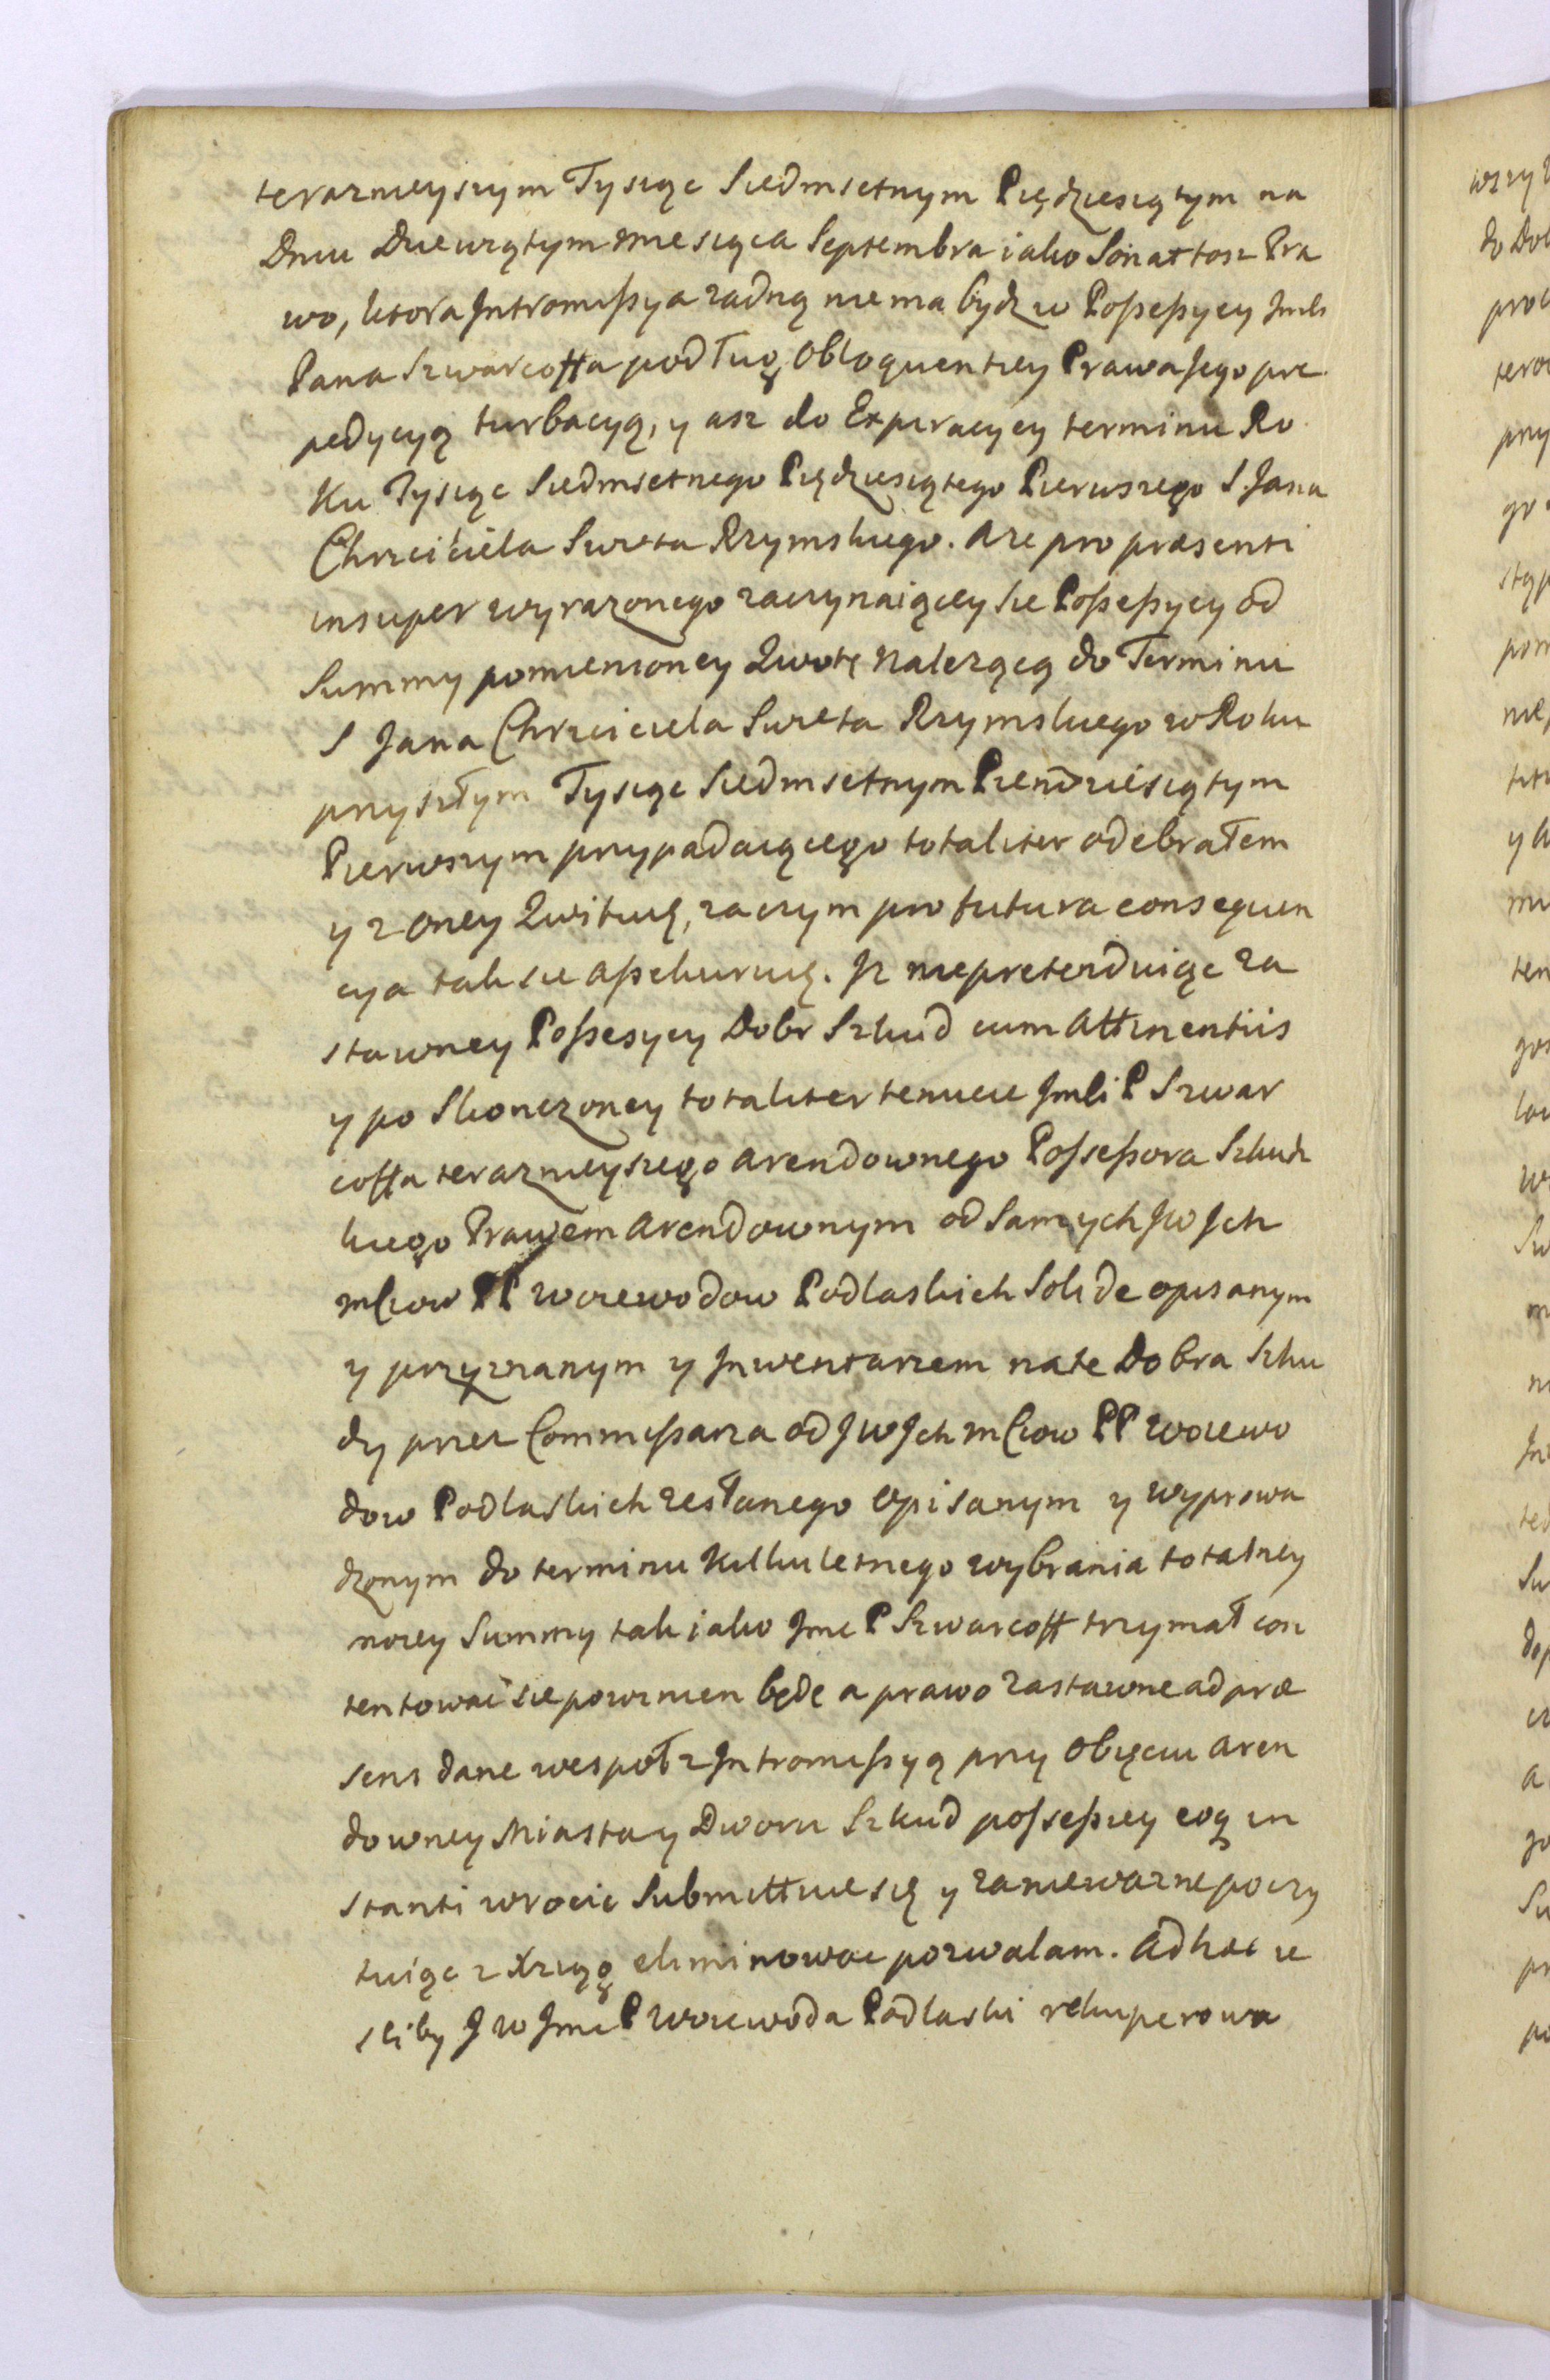 terazneyszym Tysiąc Siedmsetnym Pięдziesiątym na
Dniu Dziewiątym Miesiąca Septembra iako Sonat tosz Pra
wo, ktora Intromißya zadną nie ma bydz w Poßeßyey Jmći
Pana Szwarcoffa podług Obloquentiey Prawa Jego pre
pedycyą turbacyą, y asz do Expiracyey terminu Ro
ku Tysiąc Siedmsetnego Piędziesiątego Pierwszego S. Jana
Chrzciciela Swieta Rzymskiego. A ze pro præsenti
insuper wyrazonego zaczynaiącey sie Poßeßyey od
Summy pomienioney Qwotę Nalezącą do Terminu
S Jana Chrzciciela Swieta Rzymskiego w Roku
przyszłym Tysiąc Siedmsetnym Piendziesiątym
Pierwszym przypadaiącego totaliter odebrałem
y z Oney Qwituię, zaczym pro futura consequen
cya tak sie aßekuruię. Iz niepretenduiąc za
stawney Poßesyey Dobr Szkud cum Attinentiis
y po Skonczoney totaliter tenucie Jmći P Szwar
coffa terazneyszego Arendownego Poßeßora Szkudz
kiego Prawem Arendownym od Samych JW Ich
mCiow PP Woiewodow Podlaskich Solide opisanym
y przyznanym y Inwentarzem na te Dobra Szku
dy przez Commißarza od JW Ich mCiow PP Woiewo
dow Podlaskich zesłanego Opisanym y wyprowa
dzonym do terminu Kilkuletnego wybrania totalney
moiey Summy tak iako Jmć P Szwarcoff trzymał con
tentować sie powinien będę a prawo zastawne ad præ
sens dane wespoł z Intromißyą przy Obięciu Aren
downey Miasta y Dworu Szkud poßeßiey eoq in
stanti wrocic Submittuie się y za niewazne poczy
tuiąc z Xsiąg eliminowac pozwalam. Ad hæc ie
sliby JW Jmć P Woiewoda Podlaski rekuperowa